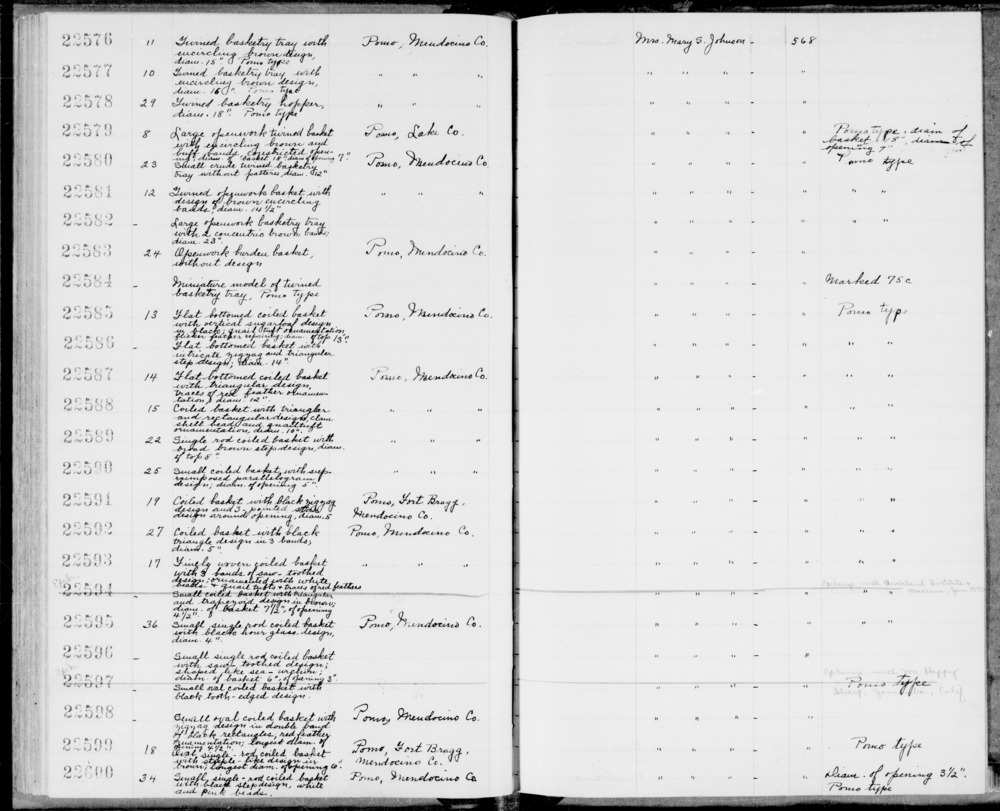 22576 11 Twined basketry tray with Pomo, Mendocino Co. Mrs. Mary S. Johnson - 568
encircling brown design,
diam. 15" Pomo type
22577 10 Twined basketry tray with " " " " " " - "
encircling brown design,
diam. 16". Pomo type
22578 29 Twined basketry hopper, " " " " " " - "
diam. 18". Pomo type
22579 8 Large openwork twined basket Pomo, Lake Co. " " " - " Pomo type; diam of
with encircling brown and basket 18", diam of
buff bands, constricted open- opening 7"
ing; diam. of basket 18" diam of opening 7"
22580 23 Small crude twined basketry Pomo, Mendocino Co. " " " - " Pomo type
tray without pattern, diam. 12"
22581 12 Twined openwork basket with " " " " " " - " " "
design of brown encircling
bands, diam. 14 1/2"
22582 - Large openwork basketry tray " " " - " " "
with 2 concentric brown bands;
diam. 23".
22583 24 Openwork burden basket, Pomo, Mendocino Co. " " " - "
without design
22584 - Miniature model of twined " " " - " Marked 75c
basketry tray. Pomo type
22585 13 Flat bottomed coiled basket Pomo, Mendocino Co. " " " - " Pomo type
with vertical sugarloaf design
in black; quail tuft ornamentation,
flicker feather repairing; diam. of top 13"
22586 - Flat bottomed basket with " " " - " " "
intricate zigzag and triangular
step design; diam. 14".
22587 14 Flat bottomed coiled basket Pomo, Mendocino Co. " " " - " " "
with triangular design,
traces of red feather ornamen-
tation, diam. 12"
22588 15 Coiled basket with triangular " " " " " " - " " "
and rectangular design, clam
shell beads and quail tuft
ornamentation, diam. 10".
22589 22 Single rod coiled basket with " " " " " " - " " "
broad brown step design, diam.
of top 8"
22590 25 Small coiled basket, with sup- " " " " " " - " "
raimposed parallelogram
design; diam. of opening 5"
22591 19 Coiled basket with black zigzag Pomo, Fort Bragg, " " " - " "
design and 3-pointed Mendocino Co.
design around opening, diam. 5
22592 27 Coiled basket with black Pomo, Mendocino Co. " " " - " " "
triangle design in 3 bands;
diam. 5"
22593 17 Finely woven coiled basket " " " " " " - " " "
with 3 bands of saw-toothed
design; ornamented with white
beads + quail tufts + traces of red feathers
22594 - Small coiled basket with triangular " " " - " " "
and trapezoid design in brown;
diam. of basket 7 1/2", of opening
4 1/2"
22595 36 Small single rod coiled basket Pomo, Mendocino Co. " " " - " " "
with black hour glass design,
diam. 4"
22596 - Small single rod coiled basket " " " - "
with saw-toothed design;
shaped like sea-urchin;
diam. of basket 6", of opening 3"
22597 - Small oval coiled basket with " " " - " Pomo type
black tooth-edged design.
22598 - Small oval coiled basket with Pomo, Mendocino Co. " " " - "
zigzag design in double band
of black rectangles, red feather
ornamentation; longest diam. of
opening 4 1/2"
22599 18 Oval, single-rod coiled basket Pomo, Fort Bragg, " " " - " Pomo type
with steeple-like design in Mendocino Co.
brown; longest diam. of opening 6"
22600 34 Small, single-rod coiled basket Pomo, Mendocino Co " " " - " Diam. of opening 3 1/2".
with black step design, white Pomo type
and pink beads.